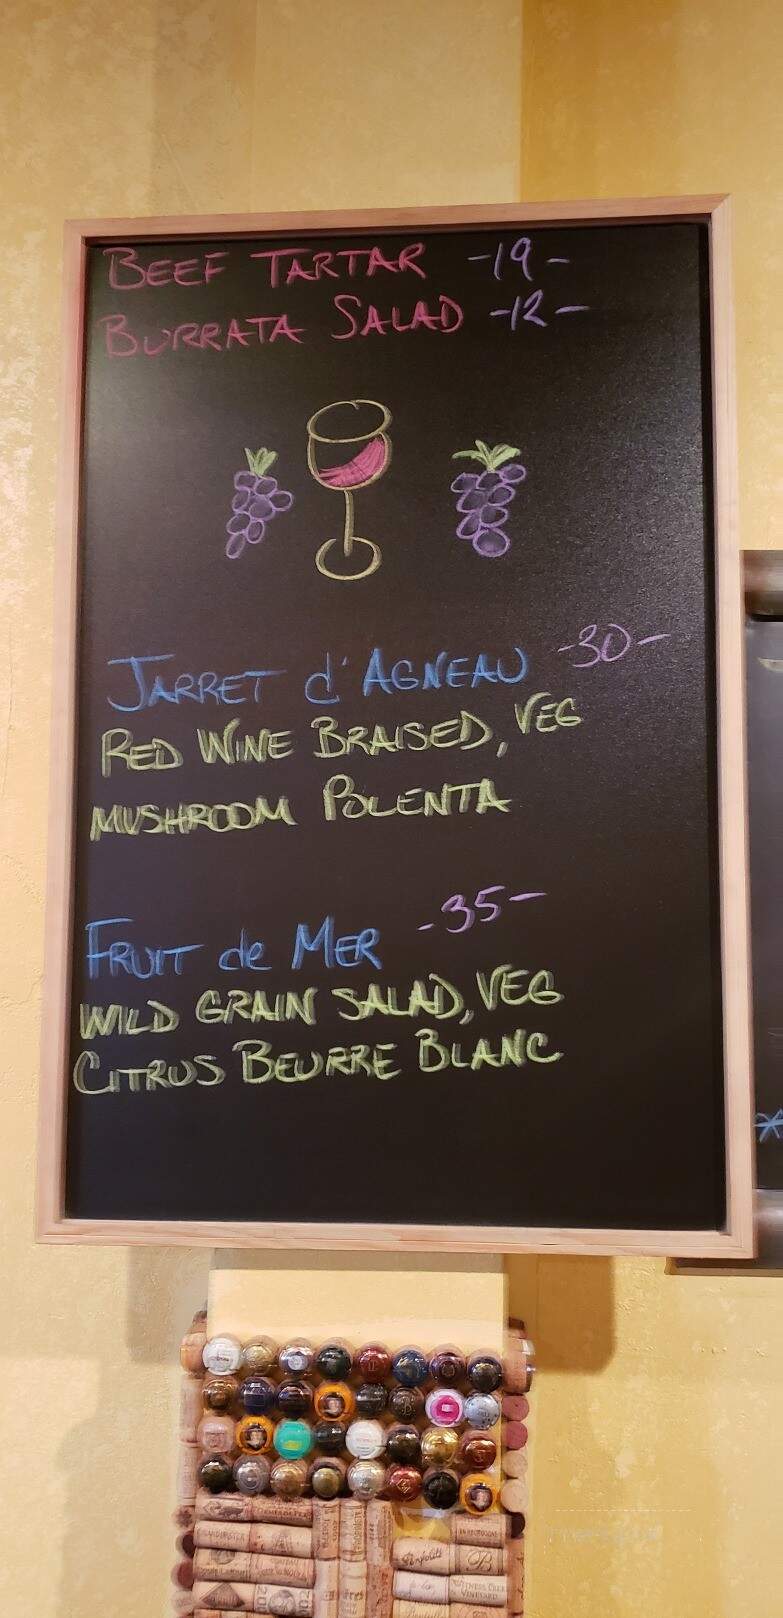 BEEF TARTAR -19-
BURRATA SALAD -12-
JARRET d'AGNEAU -30-
RED WINE BRAISED, VEG
MUSHROOM POLENTA
FRUIT de MER -35-
WILD GRAIN SALAD, VEG
CITRUS BEURRE BLANC